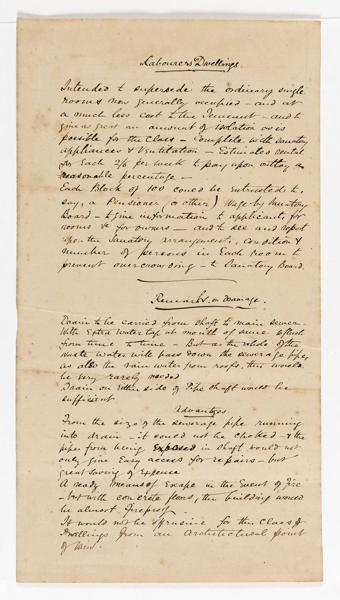 Labourers Dwellings.
Intended to supersede the ordinary single
rooms now generally occupied - and at
a much less cost to the Tenement - and to
give as great an amount of isolation as is
possible for the class - Complete with Sanitary
appliances & Ventilation - Estimated rental
for Each 2/6 per week to pay upon outlay a
reasonable percentage -
Each Block of 100 could be Entrusted to,
say, a Pensioner (or other) Wage by Sanitary
Board - to give information to applicants for
rooms &c for owners - and to see and report
upon the Sanitary arrangements, Condition &
number of persons in Each Room to
prevent overcrowding - to Sanitary Board.
Remarks on Drainage.
Drain to be carried from shaft to main sewer.
With Extra water tap at mouth of same to flush
from time to time - But as the whole of the
waste water will pass down the sewerage pipe,
as also the rain water from roofs, this would
be very rarely needed
Drain on Either side of Pipe shaft would be
sufficient
Advantages
From the size of the sewerage pipe running
into drain - it could not be choked - & the
pipes from being Exposed in shaft would not
only give Easy access for repairs - but
great saving of Expense
A ready means of Escape in the Event of Fire
- but with concrete floors, the building would
be almost fireproof -
It would not be offensive for this Class of
Dwellings from an Architectural point
of View.